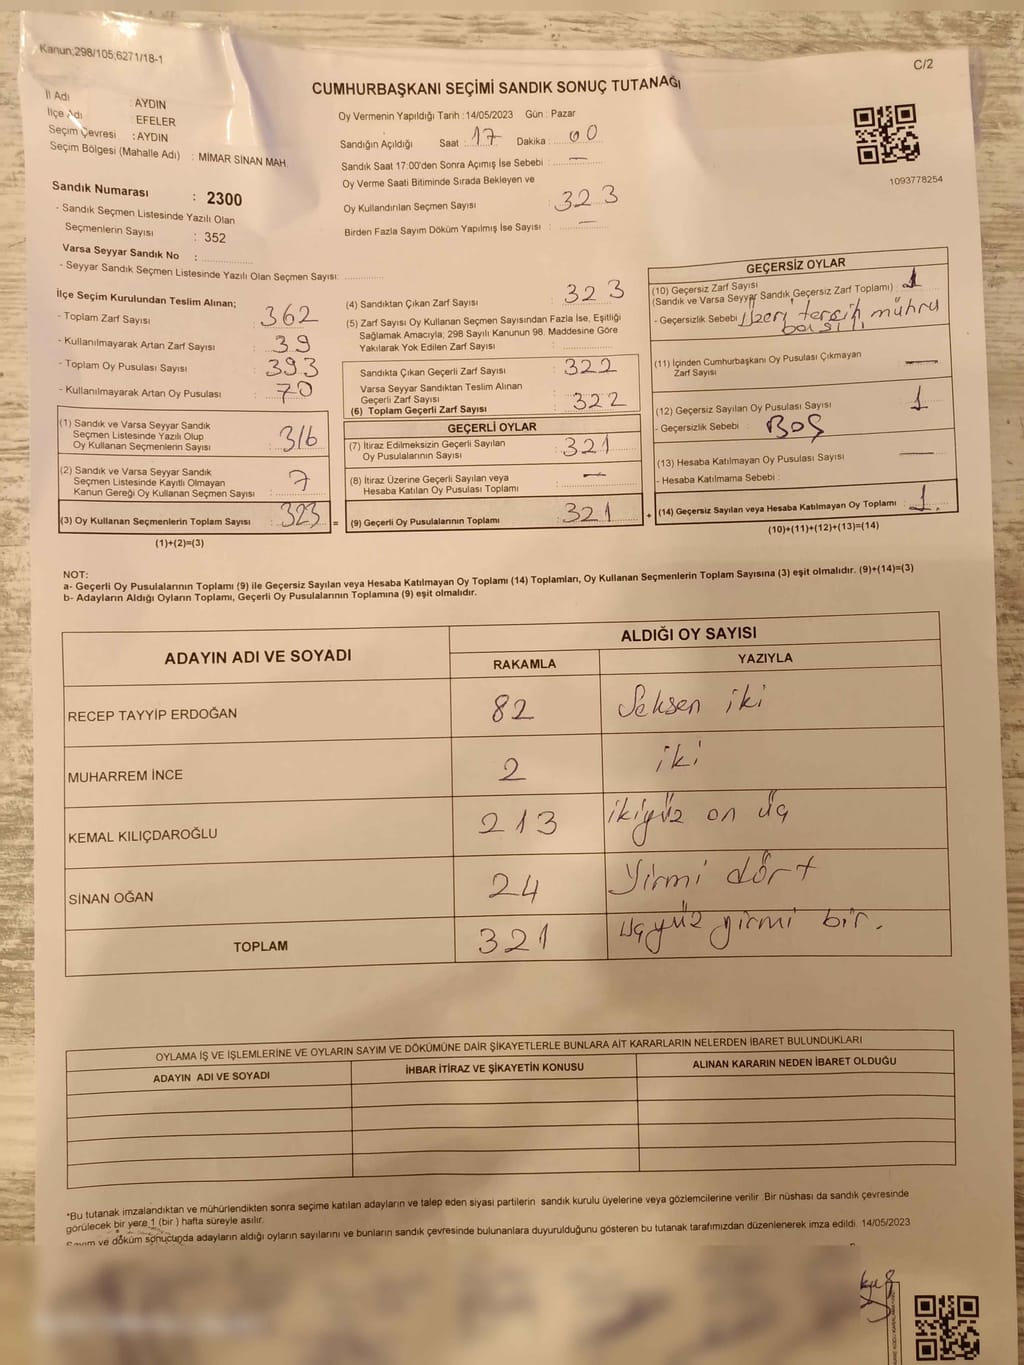 Kanun;298/105;6271/18-1
C/2
CUMHURBAŞKANI SEÇİMİ SANDIK SONUÇ TUTANAĞI
İl Adı : AYDIN
İlçe Adı : EFELER
Seçim Çevresi : AYDIN
Seçim Bölgesi (Mahalle Adı) : MİMAR SİNAN MAH.
Sandık Numarası : 2300
- Sandık Seçmen Listesinde Yazılı Olan
Seçmenlerin Sayısı : 352
Varsa Seyyar Sandık No :
- Seyyar Sandık Seçmen Listesinde Yazılı Olan Seçmen Sayısı:
Oy Vermenin Yapıldığı Tarih : 14/05/2023 Gün : Pazar
Sandığın Açıldığı Saat : 17 Dakika : 00
Sandık Saat 17:00'den Sonra Açımış İse Sebebi : —
Oy Verme Saati Bitiminde Sırada Bekleyen ve
Oy Kullandırılan Seçmen Sayısı : 323
Birden Fazla Sayım Döküm Yapılmış İse Sayısı : —
1093778254
İlçe Seçim Kurulundan Teslim Alınan;
- Toplam Zarf Sayısı : 362
- Kullanılmayarak Artan Zarf Sayısı : 39
- Toplam Oy Pusulası Sayısı : 393
- Kullanılmayarak Artan Oy Pusulası : 70
(1) Sandık ve Varsa Seyyar Sandık
Seçmen Listesinde Yazılı Olup
Oy Kullanan Seçmenlerin Sayısı : 316
(2) Sandık ve Varsa Seyyar Sandık
Seçmen Listesinde Kayıtlı Olmayan
Kanun Gereği Oy Kullanan Seçmen Sayısı : 7
(3) Oy Kullanan Seçmenlerin Toplam Sayısı : 323
(1)+(2)=(3)
(4) Sandıktan Çıkan Zarf Sayısı : 323
(5) Zarf Sayısı Oy Kullanan Seçmen Sayısından Fazla İse, Eşitliği
Sağlamak Amacıyla; 298 Sayılı Kanunun 98. Maddesine Göre
Yakılarak Yok Edilen Zarf Sayısı :
Sandıkta Çıkan Geçerli Zarf Sayısı : 322
Varsa Seyyar Sandıktan Teslim Alınan
Geçerli Zarf Sayısı :
(6) Toplam Geçerli Zarf Sayısı : 322
GEÇERLİ OYLAR
(7) İtiraz Edilmeksizin Geçerli Sayılan
Oy Pusulalarının Sayısı : 321
(8) İtiraz Üzerine Geçerli Sayılan veya
Hesaba Katılan Oy Pusulası Toplamı : —
= (9) Geçerli Oy Pusulalarının Toplamı : 321
GEÇERSİZ OYLAR
(10) Geçersiz Zarf Sayısı : 1
(Sandık ve Varsa Seyyar Sandık Geçersiz Zarf Toplamı)
- Geçersizlik Sebebi : Üzeri tercih mührü
basılı
(11) İçinden Cumhurbaşkanı Oy Pusulası Çıkmayan
Zarf Sayısı : —
(12) Geçersiz Sayılan Oy Pusulası Sayısı : 1
- Geçersizlik Sebebi : BOŞ
(13) Hesaba Katılmayan Oy Pusulası Sayısı : —
- Hesaba Katılmama Sebebi :
+ (14) Geçersiz Sayılan veya Hesaba Katılmayan Oy Toplamı : 1.
(10)+(11)+(12)+(13)=(14)
NOT:
a- Geçerli Oy Pusulalarının Toplamı (9) ile Geçersiz Sayılan veya Hesaba Katılmayan Oy Toplamı (14) Toplamları, Oy Kullanan Seçmenlerin Toplam Sayısına (3) eşit olmalıdır. (9)+(14)=(3)
b- Adayların Aldığı Oyların Toplamı, Geçerli Oy Pusulalarının Toplamına (9) eşit olmalıdır.
ADAYIN ADI VE SOYADI
ALDIĞI OY SAYISI
RAKAMLA YAZIYLA
RECEP TAYYİP ERDOĞAN 82 Seksen iki
MUHARREM İNCE 2 iki
KEMAL KILIÇDAROĞLU 213 ikiyüz on üç
SİNAN OĞAN 24 Yirmi dört
TOPLAM 321 üçyüz yirmi bir.
OYLAMA İŞ VE İŞLEMLERİNE VE OYLARIN SAYIM VE DÖKÜMÜNE DAİR ŞİKAYETLERLE BUNLARA AİT KARARLARIN NELERDEN İBARET BULUNDUKLARI
ADAYIN ADI VE SOYADI İHBAR İTİRAZ VE ŞİKAYETİN KONUSU ALINAN KARARIN NEDEN İBARET OLDUĞU
*Bu tutanak imzalandıktan ve mühürlendikten sonra seçime katılan adayların ve talep eden siyasi partilerin sandık kurulu üyelerine veya gözlemcilerine verilir .Bir nüshası da sandık çevresinde
görülecek bir yere 1 (bir ) hafta süreyle asılır.
Sayım ve döküm sonucunda adayların aldığı oyların sayılarını ve bunların sandık çevresinde bulunanlara duyurulduğunu gösteren bu tutanak tarafımızdan düzenlenerek imza edildi. 14/05/2023